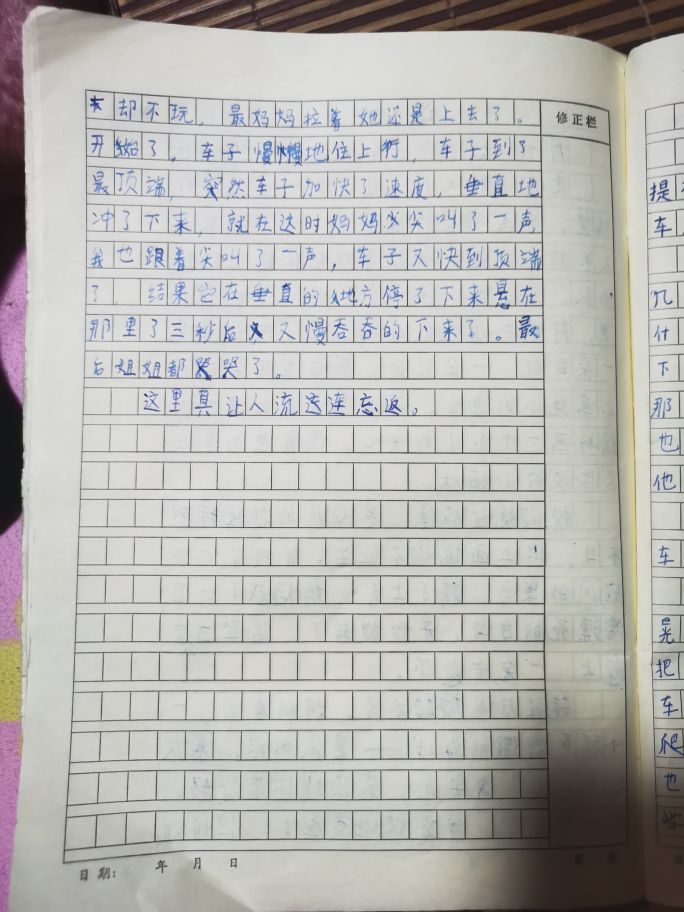 却不玩，最妈妈拉着她还是上去了。
修正栏
开始了，车子慢慢地住上行，车子到了
最顶端，突然车子加快了速度，垂直地
冲了下来，就在这时妈妈尖叫了一声，
我也跟着尖叫了一声，车子又快到顶端
了，结果它在垂直的地方停了下来悬在
那里了三秒后又慢吞吞的下来了。最
后姐姐都哭了。
这里真让人流连忘返。
日期： 年 月 日
提
车
几
什
下
那
也
他
车
晃
把
车
爬
也
学